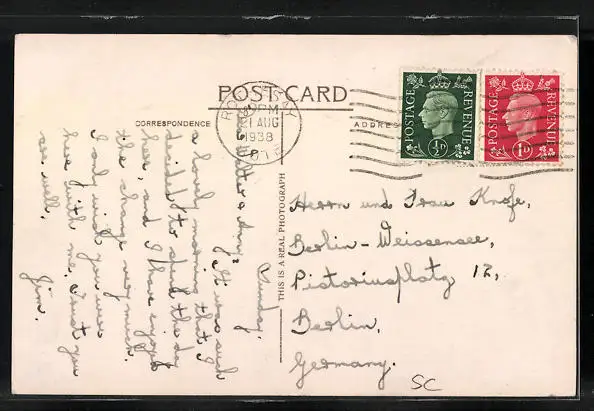 POST CARD
CORRESPONDENCE
ADDRES
ROTHESAY
PM
21 AUG
1938
BUTE
POSTAGE REVENUE
½D
POSTAGE REVENUE
1D
THIS IS A REAL PHOTOGRAPH
Sunday.
Walter & Amy,
It was such
a lovely morning that I
decided to spend the day
here, and I have enjoyed
the change very much.
I only wish you were
here with me. Trust you
are well.
Jim.
Herrn und Frau Knofe,
Berlin-Weissensee,
Pistoriusplatz 12,
Berlin,
Germany.
SC